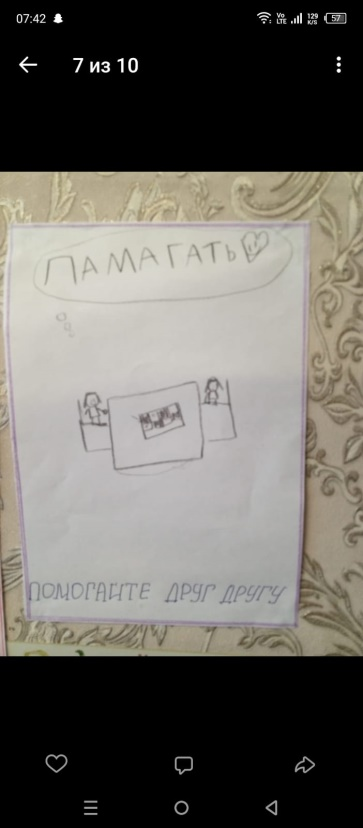 07:42
Vo LTE 129 K/S 57
7 из 10
ПАМАГАТЬ
ПОМОГАЙТЕ ДРУГ ДРУГУ